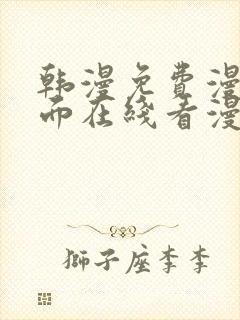 韩漫免费漫
而在线看漫
獅子座李李